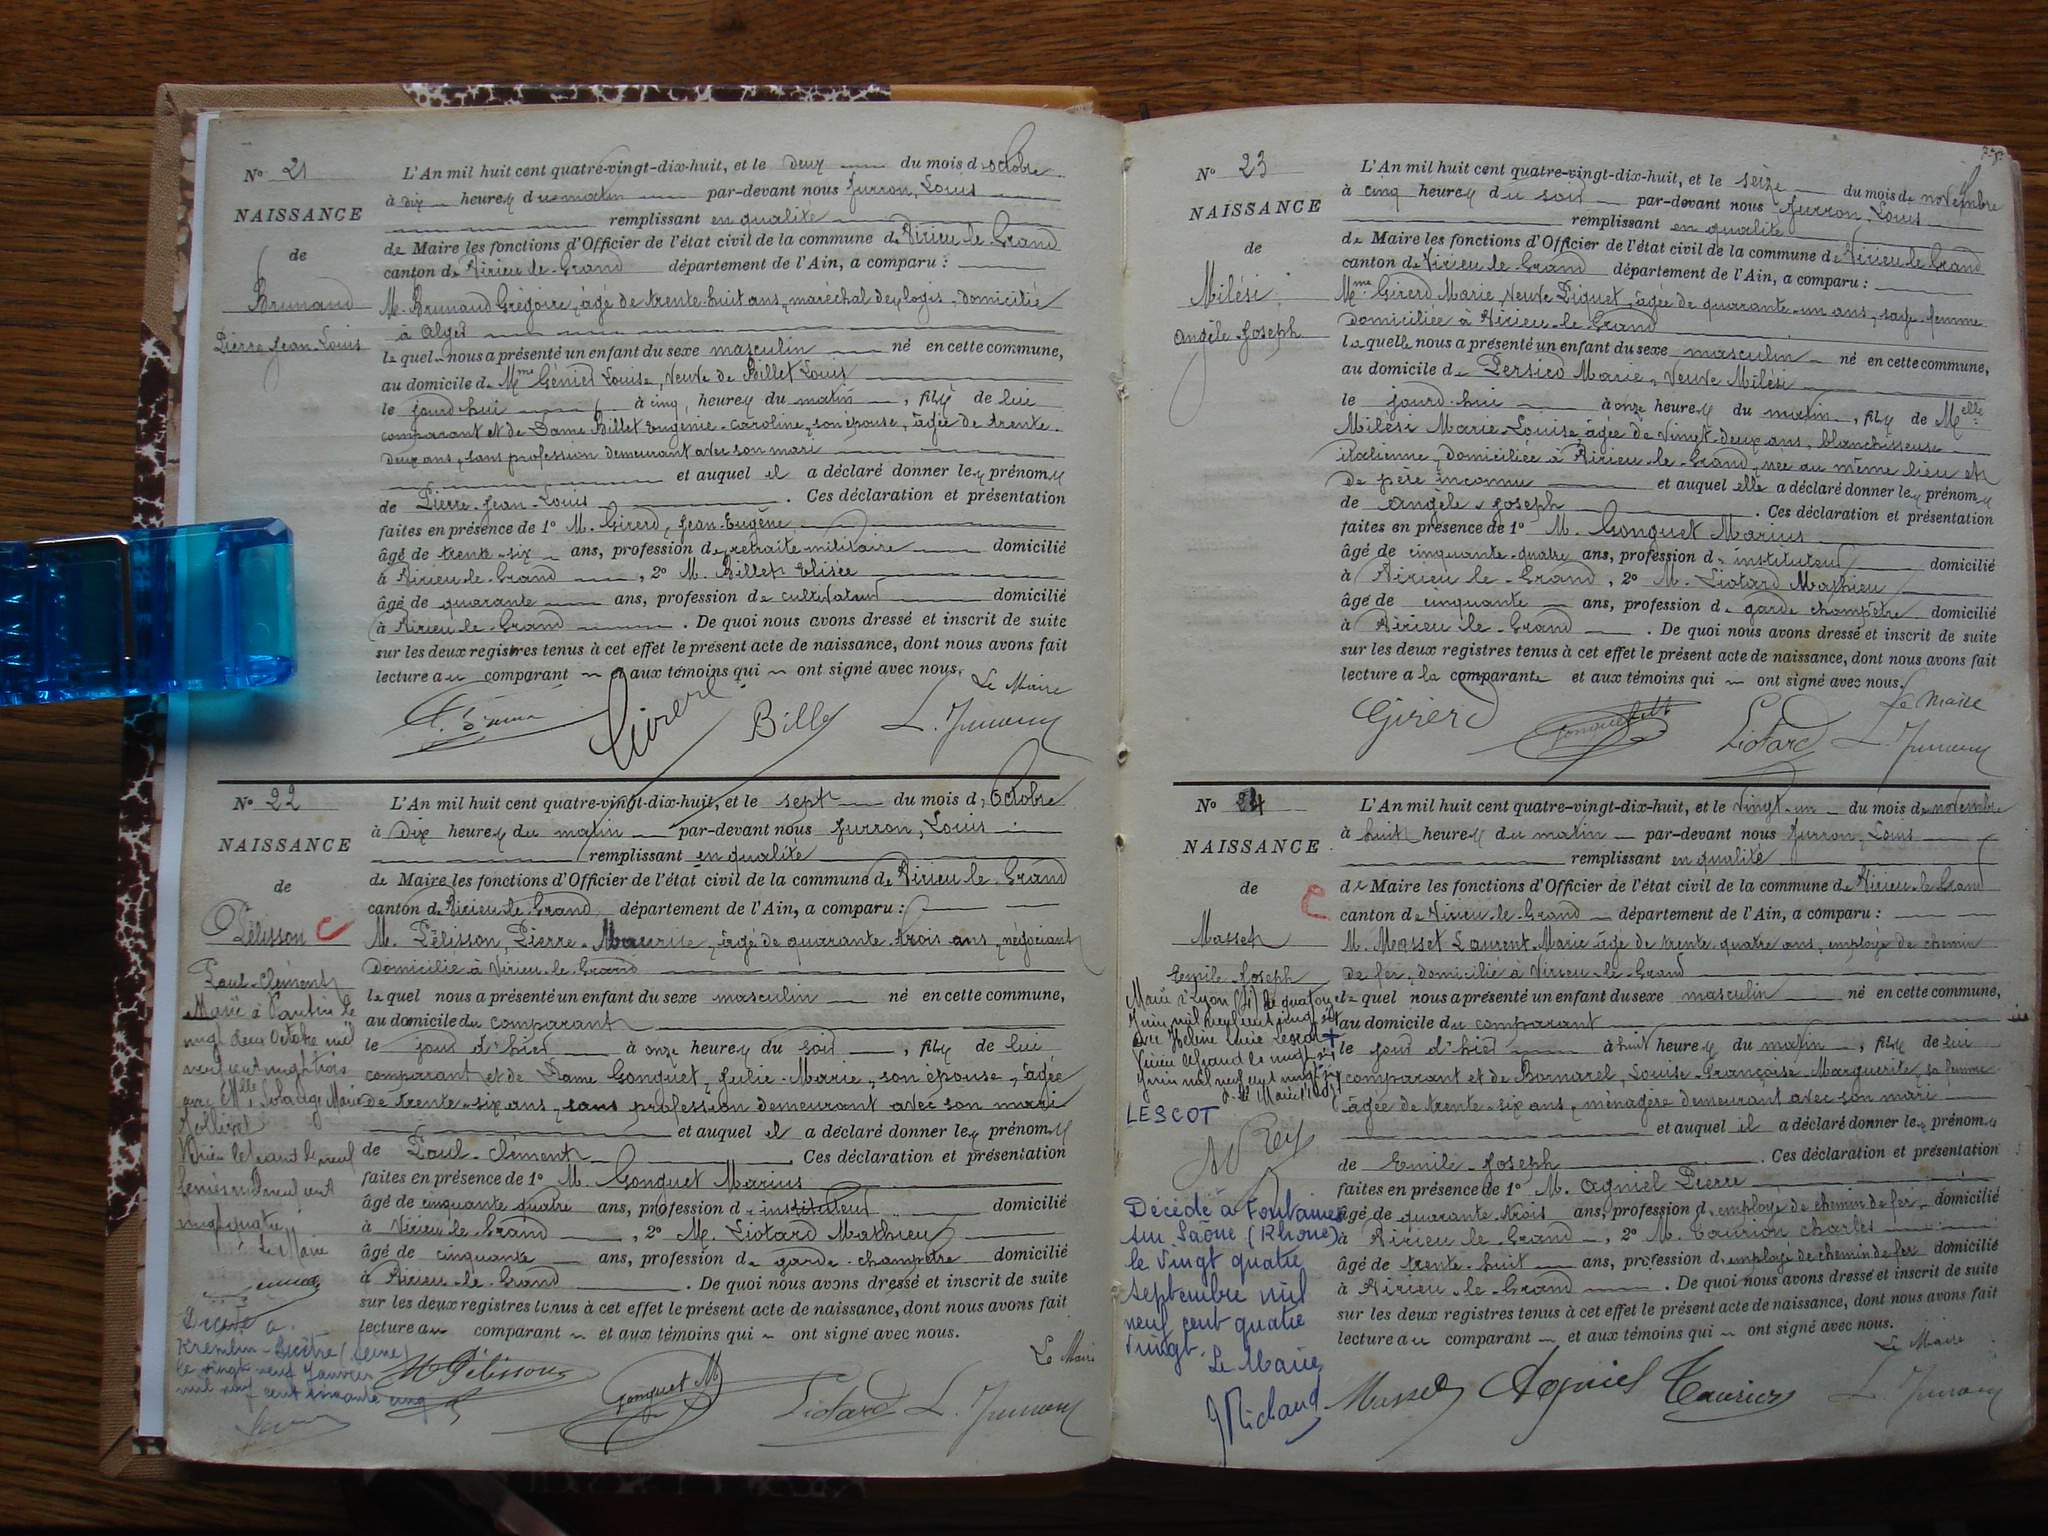 No 21
NAISSANCE
de
Brunand
Pierre-Jean-Louis
L'An mil huit cent quatre-vingt-dix-huit, et le deux du mois d'octobre
à dix heures du matin par-devant nous Jurron, Louis
remplissant en qualité
de Maire les fonctions d'Officier de l'état civil de la commune de Virieu-le-Grand
canton de Virieu-le-Grand département de l'Ain, a comparu :
M. Brunand Grégoire, âgé de trente-huit ans, maréchal des logis, domicilié
à Alger
lequel nous a présenté un enfant du sexe masculin né en cette commune,
au domicile de Mme Génier Louise, Veuve de Billet Louis
le jourd'hui à cinq heures du matin, fils de lui
comparant et de Dame Billet Eugénie-Caroline, son épouse, âgée de trente-
deux ans, sans profession demeurant avec son mari
et auquel il a déclaré donner les prénoms
de Pierre-Jean-Louis. Ces déclaration et présentation
faites en présence de 1o M. Girerd, Jean-Eugène
âgé de trente-six ans, profession de retraité militaire domicilié
à Virieu-le-Grand, 2o M. Billet Elisée
âgé de quarante ans, profession de cultivateur domicilié
à Virieu-le-Grand. De quoi nous avons dressé et inscrit de suite
sur les deux registres tenus à cet effet le présent acte de naissance, dont nous avons fait
lecture au comparant et aux témoins qui ont signé avec nous.
Le Maire
Girerd Billet
No 22
NAISSANCE
de
Pélisson C
Paul-Clément
Marié à Pantin le
vingt deux Octobre mil
neuf cent vingt trois
avec Melle Solange Marie
Virieu le Grand le neuf
mil neuf cent
vingt quatre
Le Maire
Décédé à
Kremlin-Bicêtre (Seine)
le vingt neuf Janvier
mil neuf cent soixante cinq
L'An mil huit cent quatre-vingt-dix-huit, et le sept du mois d'Octobre
à dix heures du matin par-devant nous Jurron, Louis
remplissant en qualité
de Maire les fonctions d'Officier de l'état civil de la commune de Virieu-le-Grand
canton de Virieu-le-Grand département de l'Ain, a comparu :
M. Pélisson, Pierre-Maurice, âgé de quarante-trois ans, négociant
domicilié à Virieu-le-Grand
lequel nous a présenté un enfant du sexe masculin né en cette commune,
au domicile du comparant
le jour d'hier à onze heures du soir, fils de lui
comparant et de Dame Gonguet, Julie-Marie, son épouse, âgée
de trente-six ans, sans profession demeurant avec son mari
et auquel il a déclaré donner les prénoms
de Paul-Clément. Ces déclaration et présentation
faites en présence de 1o M. Gonguet Marius
âgé de cinquante quatre ans, profession d'instituteur domicilié
à Virieu-le-Grand, 2o M. Liotard Mathieu
âgé de cinquante ans, profession de garde-champêtre domicilié
à Virieu-le-Grand. De quoi nous avons dressé et inscrit de suite
sur les deux registres tenus à cet effet le présent acte de naissance, dont nous avons fait
lecture au comparant et aux témoins qui ont signé avec nous.
Le Maire
Pélisson Gonguet M Liotard
No 23
NAISSANCE
de
Milési
Angèle-Joseph
L'An mil huit cent quatre-vingt-dix-huit, et le seize du mois de novembre
à cinq heures du soir par-devant nous Jurron, Louis
remplissant en qualité
de Maire les fonctions d'Officier de l'état civil de la commune de Virieu-le-Grand
canton de Virieu-le-Grand département de l'Ain, a comparu :
Mme Girerd Marie, Veuve Piguet, âgée de quarante-un ans, sage-femme
domiciliée à Virieu-le-Grand
laquelle nous a présenté un enfant du sexe masculin né en cette commune,
au domicile de Persico Marie, Veuve Milési
le jourd'hui à onze heures du matin, fils de Melle
Milési Marie-Louise, âgée de vingt-deux ans, blanchisseuse
italienne, domiciliée à Virieu-le-Grand, née au même lieu et
de père inconnu et auquel elle a déclaré donner les prénoms
de Angèle-Joseph. Ces déclaration et présentation
faites en présence de 1o M. Gonguet Marius
âgé de cinquante-quatre ans, profession d'instituteur domicilié
à Virieu-le-Grand, 2o M. Liotard Mathieu
âgé de cinquante ans, profession de garde champêtre domicilié
à Virieu-le-Grand. De quoi nous avons dressé et inscrit de suite
sur les deux registres tenus à cet effet le présent acte de naissance, dont nous avons fait
lecture a la comparante et aux témoins qui ont signé avec nous.
Le Maire
Girerd Liotard
No 24
NAISSANCE
de
C
Masset
Emile-Joseph
Marié à Lyon
LESCOT
Décédé à Fontaines
sur Saône (Rhône)
le vingt quatre
septembre mil
neuf cent quatre
vingt.
Le Maire
L'An mil huit cent quatre-vingt-dix-huit, et le vingt-un du mois de novembre
à huit heures du matin par-devant nous Jurron, Louis
remplissant en qualité
de Maire les fonctions d'Officier de l'état civil de la commune de Virieu-le-Grand
canton de Virieu-le-Grand département de l'Ain, a comparu :
M. Masset Laurent-Marie âgé de trente-quatre ans, employé de chemin
de fer, domicilié à Virieu-le-Grand
lequel nous a présenté un enfant du sexe masculin né en cette commune,
au domicile du comparant
le jour d'hier à huit heures du matin, fils de lui
comparant et de Bornarel, Louise-Françoise-Marguerite, sa femme
âgée de trente-six ans, ménagère demeurant avec son mari
et auquel il a déclaré donner les prénoms
de Emile-Joseph. Ces déclaration et présentation
faites en présence de 1o M. Agniel Pierre
âgé de quarante-trois ans, profession d'employé de chemin de fer domicilié
à Virieu-le-Grand, 2o M. Taurion Charles
âgé de trente-huit ans, profession d'employé de chemin de fer domicilié
à Virieu-le-Grand. De quoi nous avons dressé et inscrit de suite
sur les deux registres tenus à cet effet le présent acte de naissance, dont nous avons fait
lecture au comparant et aux témoins qui ont signé avec nous.
Le Maire
Masset Agniel